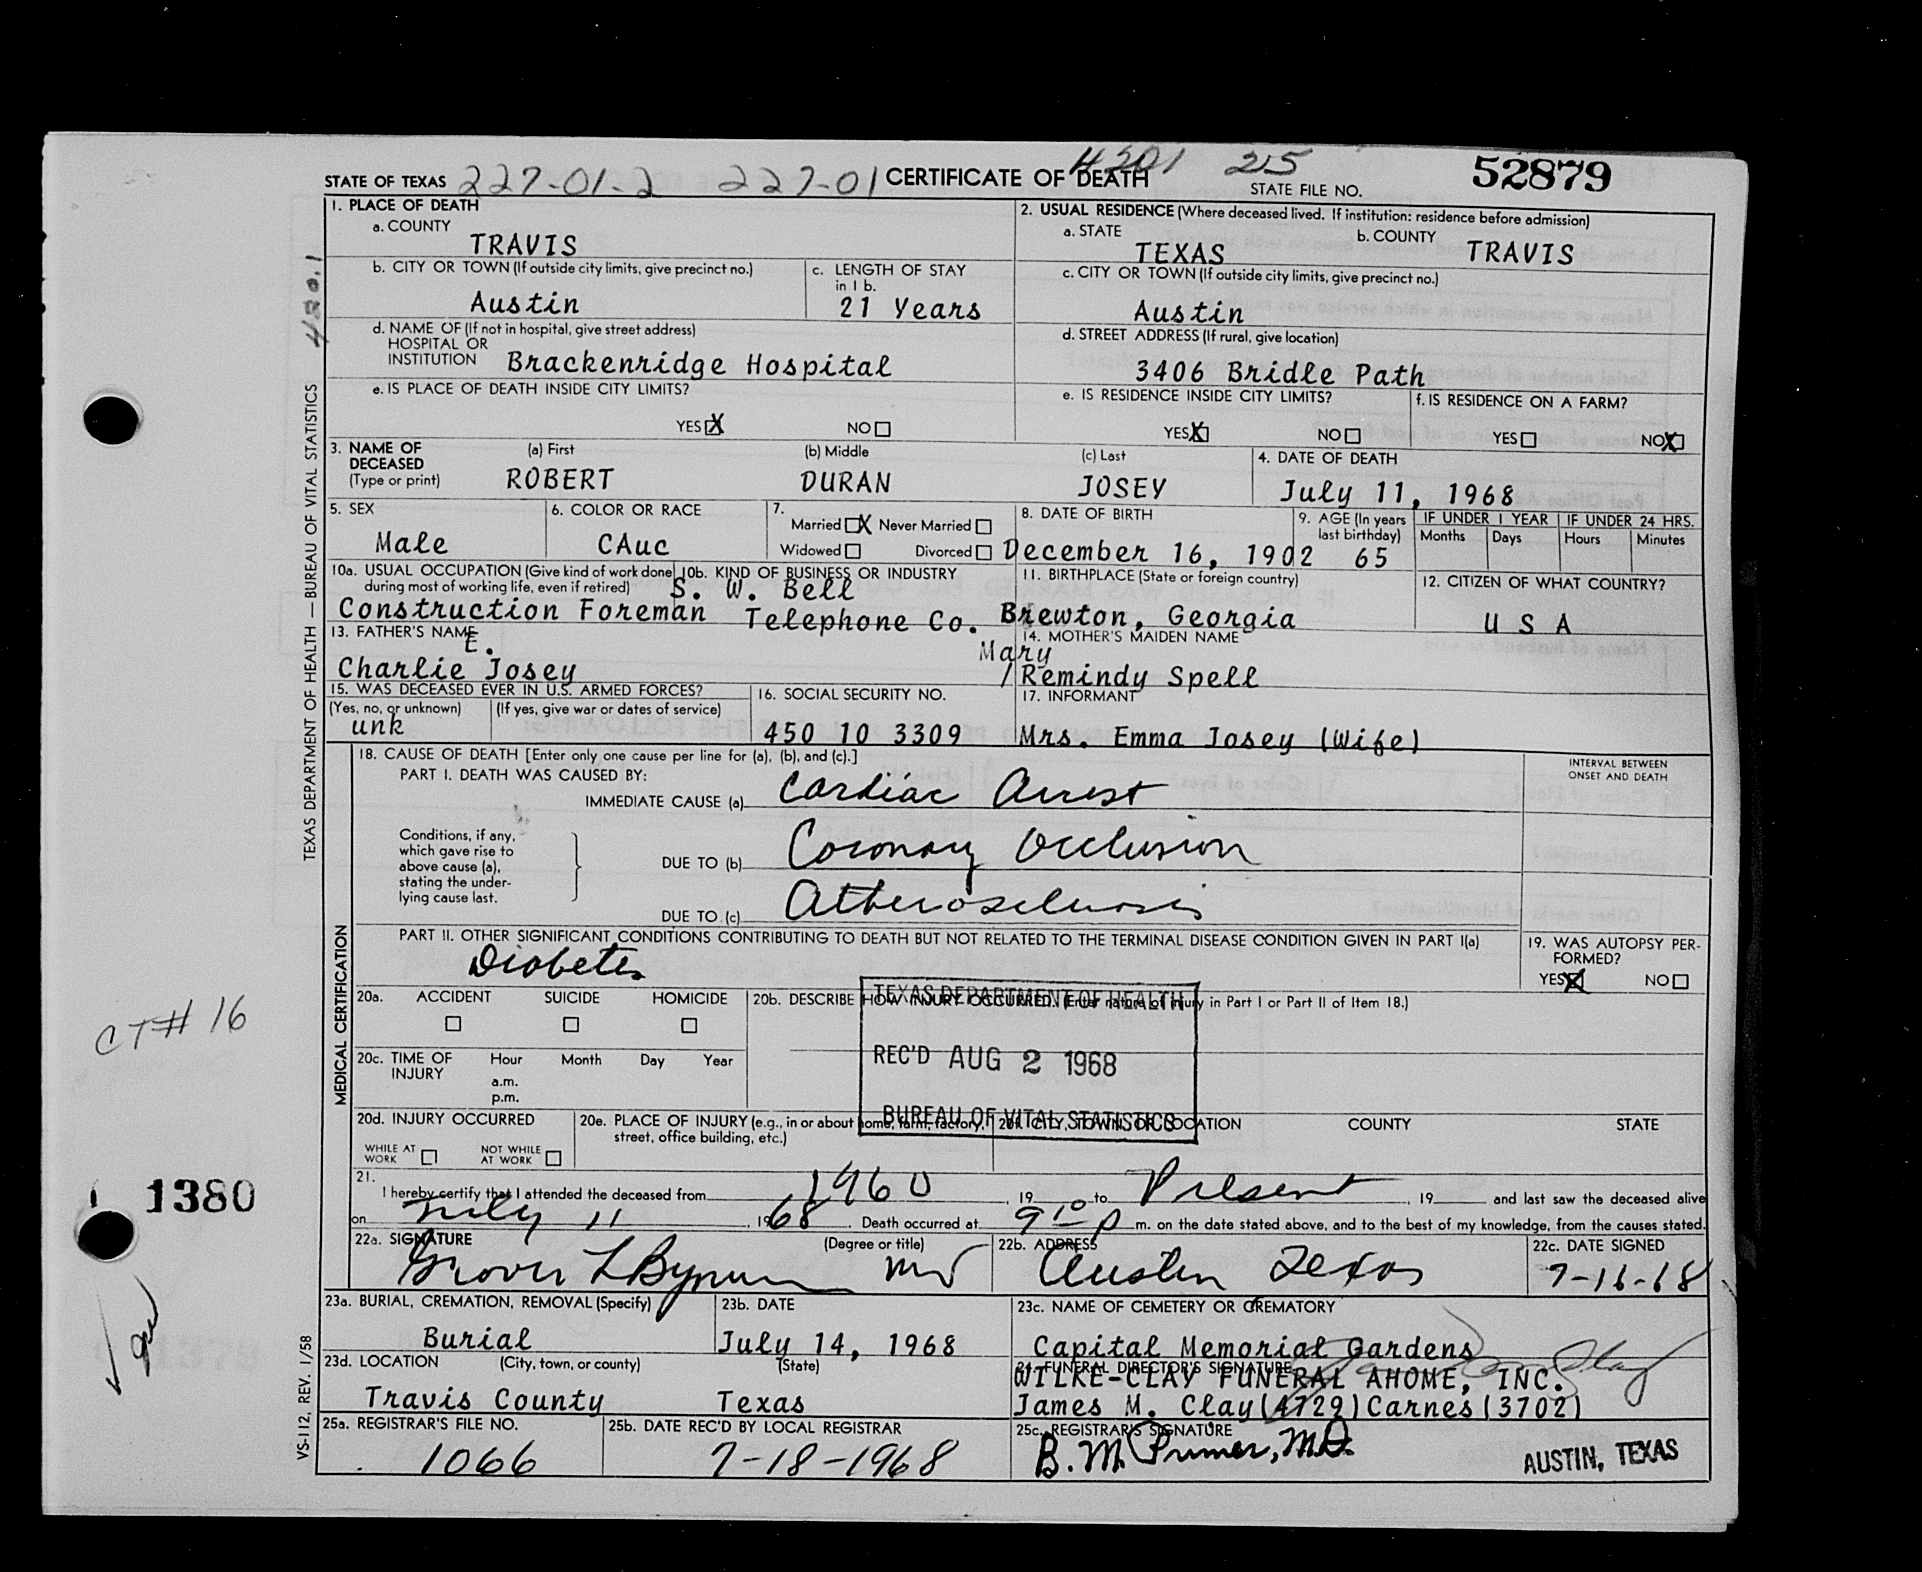 STATE OF TEXAS 227-01-2 227-01 CERTIFICATE OF DEATH 4201 215 STATE FILE NO. 52879
1. PLACE OF DEATH
a. COUNTY
TRAVIS
2. USUAL RESIDENCE (Where deceased lived. If institution: residence before admission)
a. STATE TEXAS b. COUNTY TRAVIS
b. CITY OR TOWN (If outside city limits, give precinct no.)
Austin
c. LENGTH OF STAY in 1 b.
21 Years
c. CITY OR TOWN (If outside city limits, give precinct no.)
Austin
d. NAME OF (If not in hospital, give street address)
HOSPITAL OR
INSTITUTION Brackenridge Hospital
d. STREET ADDRESS (If rural, give location)
3406 Bridle Path
e. IS PLACE OF DEATH INSIDE CITY LIMITS?
YES X NO
e. IS RESIDENCE INSIDE CITY LIMITS?
YES X NO
f. IS RESIDENCE ON A FARM?
YES NO X
3. NAME OF DECEASED (Type or print)
(a) First (b) Middle (c) Last
ROBERT DURAN JOSEY
4. DATE OF DEATH
July 11, 1968
5. SEX
Male
6. COLOR OR RACE
CAuc
7.
Married X Never Married
Widowed Divorced
8. DATE OF BIRTH
December 16, 1902
9. AGE (In years last birthday)
65
IF UNDER 1 YEAR IF UNDER 24 HRS.
Months Days Hours Minutes
10a. USUAL OCCUPATION (Give kind of work done during most of working life, even if retired)
Construction Foreman
10b. KIND OF BUSINESS OR INDUSTRY
S. W. Bell
Telephone Co.
11. BIRTHPLACE (State or foreign country)
Brewton, Georgia
12. CITIZEN OF WHAT COUNTRY?
U S A
13. FATHER'S NAME
E.
Charlie Josey
14. MOTHER'S MAIDEN NAME
Mary
/ Remindy Spell
15. WAS DECEASED EVER IN U.S. ARMED FORCES?
(Yes, no, or unknown) (If yes, give war or dates of service)
unk
16. SOCIAL SECURITY NO.
450 10 3309
17. INFORMANT
Mrs. Emma Josey (Wife)
18. CAUSE OF DEATH [Enter only one cause per line for (a), (b), and (c).]
INTERVAL BETWEEN
ONSET AND DEATH
PART I. DEATH WAS CAUSED BY:
IMMEDIATE CAUSE (a) Cardiac Arrest
Conditions, if any,
which gave rise to
above cause (a),
stating the under-
lying cause last.
DUE TO (b) Coronary Occlusion
DUE TO (c) Atherosclerosis
PART II. OTHER SIGNIFICANT CONDITIONS CONTRIBUTING TO DEATH BUT NOT RELATED TO THE TERMINAL DISEASE CONDITION GIVEN IN PART I(a)
Diabetes
19. WAS AUTOPSY PER-
FORMED?
YES X NO
20a. ACCIDENT SUICIDE HOMICIDE
20b. DESCRIBE HOW INJURY OCCURRED. (Enter nature of injury in Part I or Part II of Item 18.)
TEXAS DEPARTMENT OF HEALTH
REC'D AUG 2 1968
BUREAU OF VITAL STATISTICS
20c. TIME OF INJURY Hour Month Day Year
a.m.
p.m.
20d. INJURY OCCURRED
WHILE AT WORK NOT WHILE AT WORK
20e. PLACE OF INJURY (e.g., in or about home, farm, factory,
street, office building, etc.)
20f. CITY, TOWN, OR LOCATION COUNTY STATE
21.
I hereby certify that I attended the deceased from 1960, 19 to Present, 19 and last saw the deceased alive
on July 11, 1968. Death occurred at 9 10 p m. on the date stated above, and to the best of my knowledge, from the causes stated.
22a. SIGNATURE (Degree or title)
Grover L Bynum MD
22b. ADDRESS
Austin Texas
22c. DATE SIGNED
7-16-68
23a. BURIAL, CREMATION, REMOVAL (Specify)
Burial
23b. DATE
July 14, 1968
23c. NAME OF CEMETERY OR CREMATORY
Capital Memorial Gardens
23d. LOCATION (City, town, or county) (State)
Travis County Texas
24. FUNERAL DIRECTOR'S SIGNATURE
WILKE-CLAY FUNERAL AHOME, INC.
James M. Clay(4729)Carnes(3702)
25a. REGISTRAR'S FILE NO.
1066
25b. DATE REC'D BY LOCAL REGISTRAR
7-18-1968
25c. REGISTRAR'S SIGNATURE
B. M. Primer, M.D.
AUSTIN, TEXAS
4201
TEXAS DEPARTMENT OF HEALTH — BUREAU OF VITAL STATISTICS
MEDICAL CERTIFICATION
VS-112, REV. 1/58
CT# 16
1380